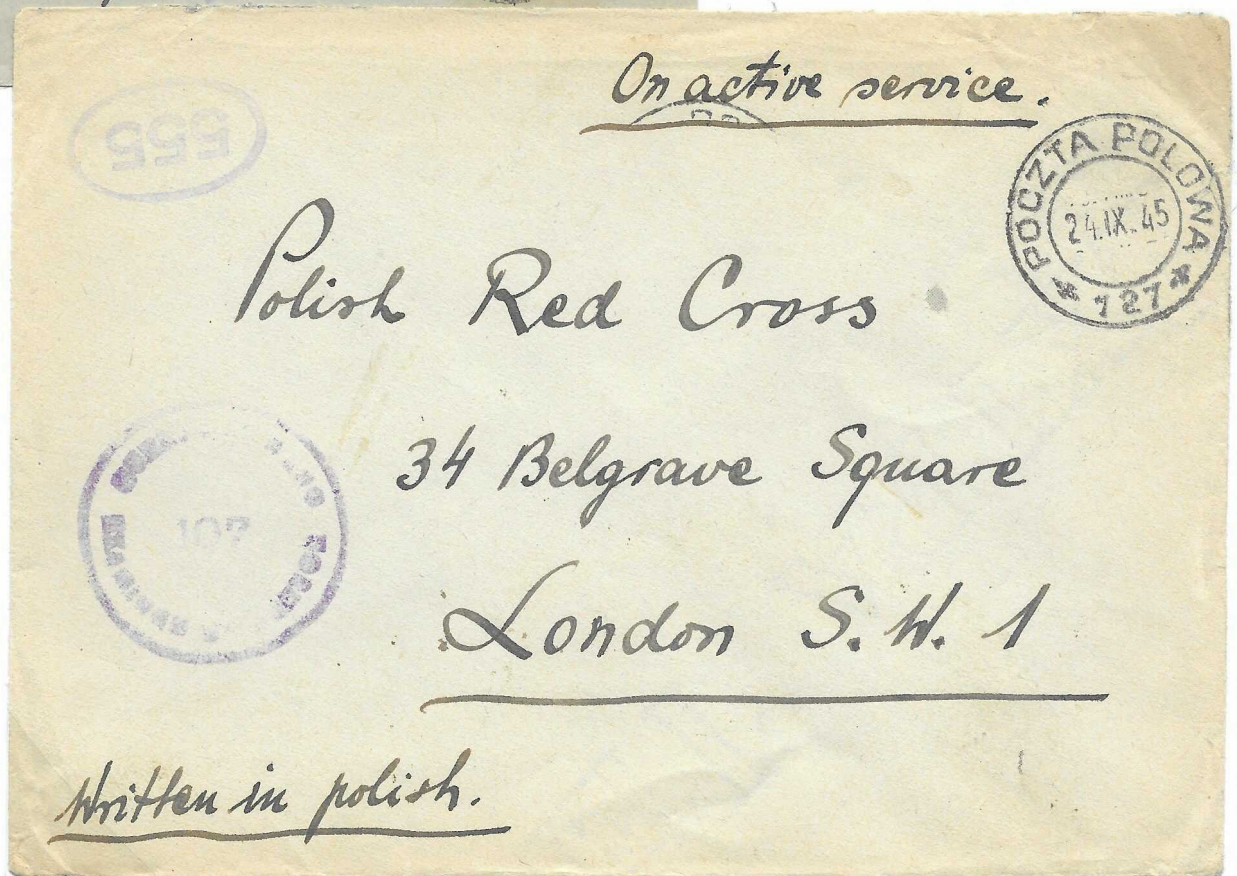 On active service.
555
POCZTA POLOWA
24.IX.45
* 127 *
Polish Red Cross
34 Belgrave Square
107
London S.W. 1
Written in polish.